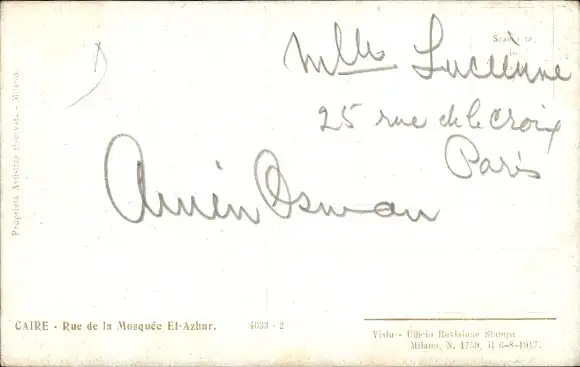 Mlles Lucienne
25 rue de la Croix
Paris
Amin Osman
Proprietà Artistica riservata - Milano.
CAIRE - Rue de la Mosquée El-Azhar.
4033 - 2
Visto - Ufficio Revisione Stampa
Milano, N. 4759, il 6-8-1917.